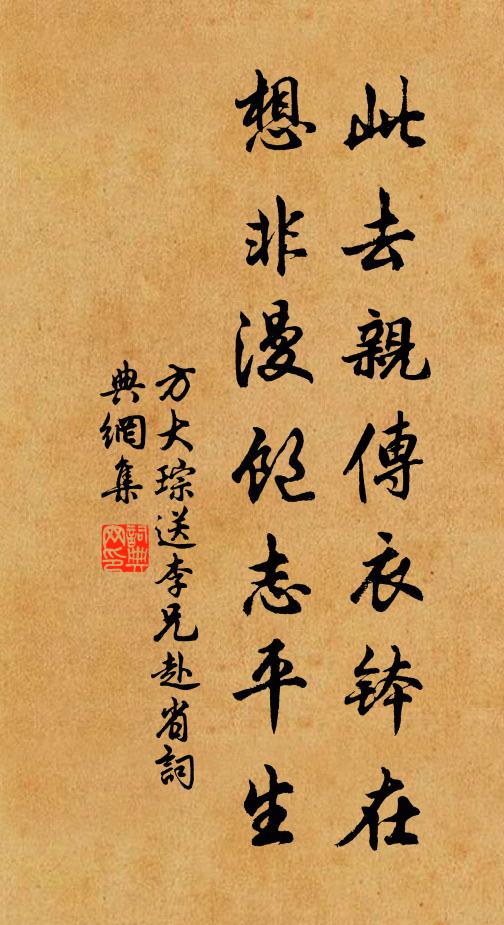 此去親傳衣鉢在
想非漫飽志平生
方大琮送李兄赴省詞
典網集
詞典网印